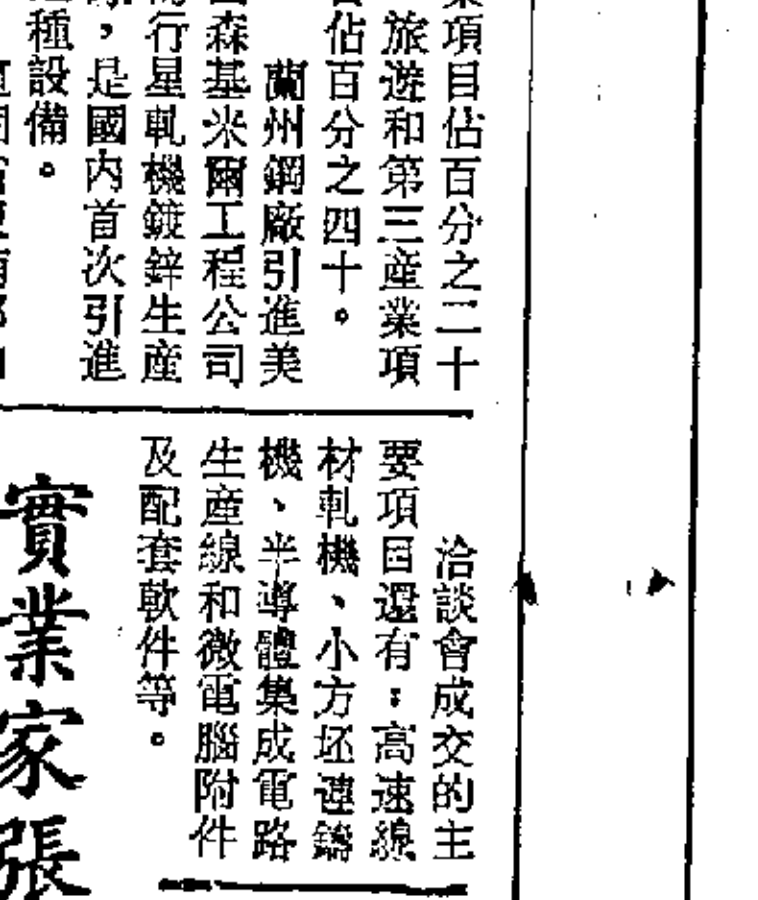 業項目佔百分之二十
旅遊和第三產業項
佔百分之四十。
蘭州鋼廠引進美
森基米爾工程公司
行星軋機鍍鋅生產
，是國內首次引進
種設備。
洽談會成交的主
要項目還有：高速線
材軋機、小方坯連鑄
機、半導體集成電路
生產線和微電腦附件
及配套軟件等。
實業家張